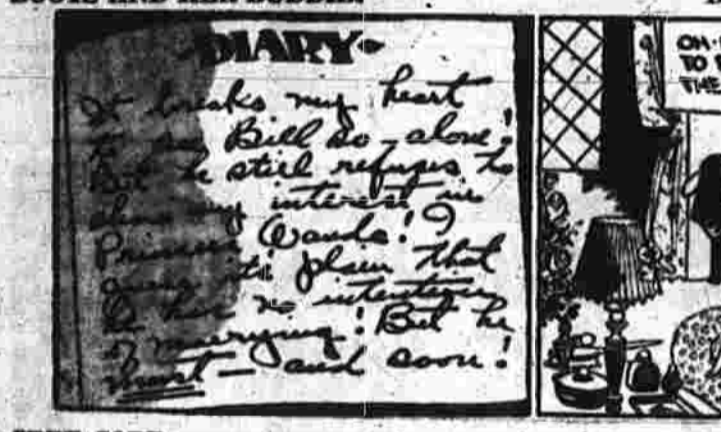 BOOTS AND HER BUDDIES
DIARY
It breaks my heart
to see Bill so alone!
But he still refuses to
show any interest in
Princess Wanda! I
guess it's plain that
he has no intention
of marrying! But he
must — and soon!
OH
TO
THE